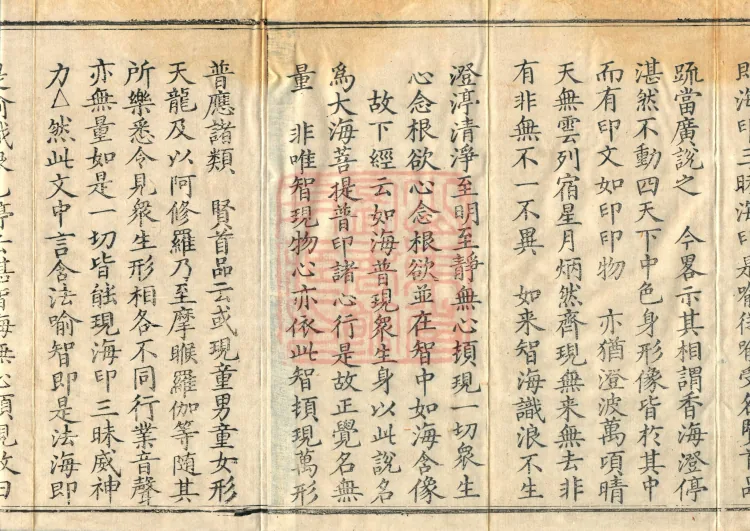 即海印三昧海印是喻從喻受名首品
䟽當廣說之　今畧示其相謂香海澄停
湛然不動四天下中色身形像皆於其中
而有印文如印印物　亦猶澄波萬頃晴
天無雲列宿星月炳然齊現無来無去非
有非無不一不異　如来智海識浪不生
澄渟清淨至明至靜無心頓現一切衆生
心念根欲心念根欲並在智中如海含像
故下經云如海普現衆生身以此說名
爲大海菩提普印諸心行是故正覺名無
量　非唯智現物心亦依此智頓現萬形
普應諸類　賢首品云或現童男童女形
天龍及以阿修羅乃至摩睺羅伽等隨其
所樂悉令見衆生形相各不同行業音聲
亦無量如是一切皆能現海印三昧威神
力△然此文中言含法喻智即是法海即
是喻識浪停智海無心頓現故曰